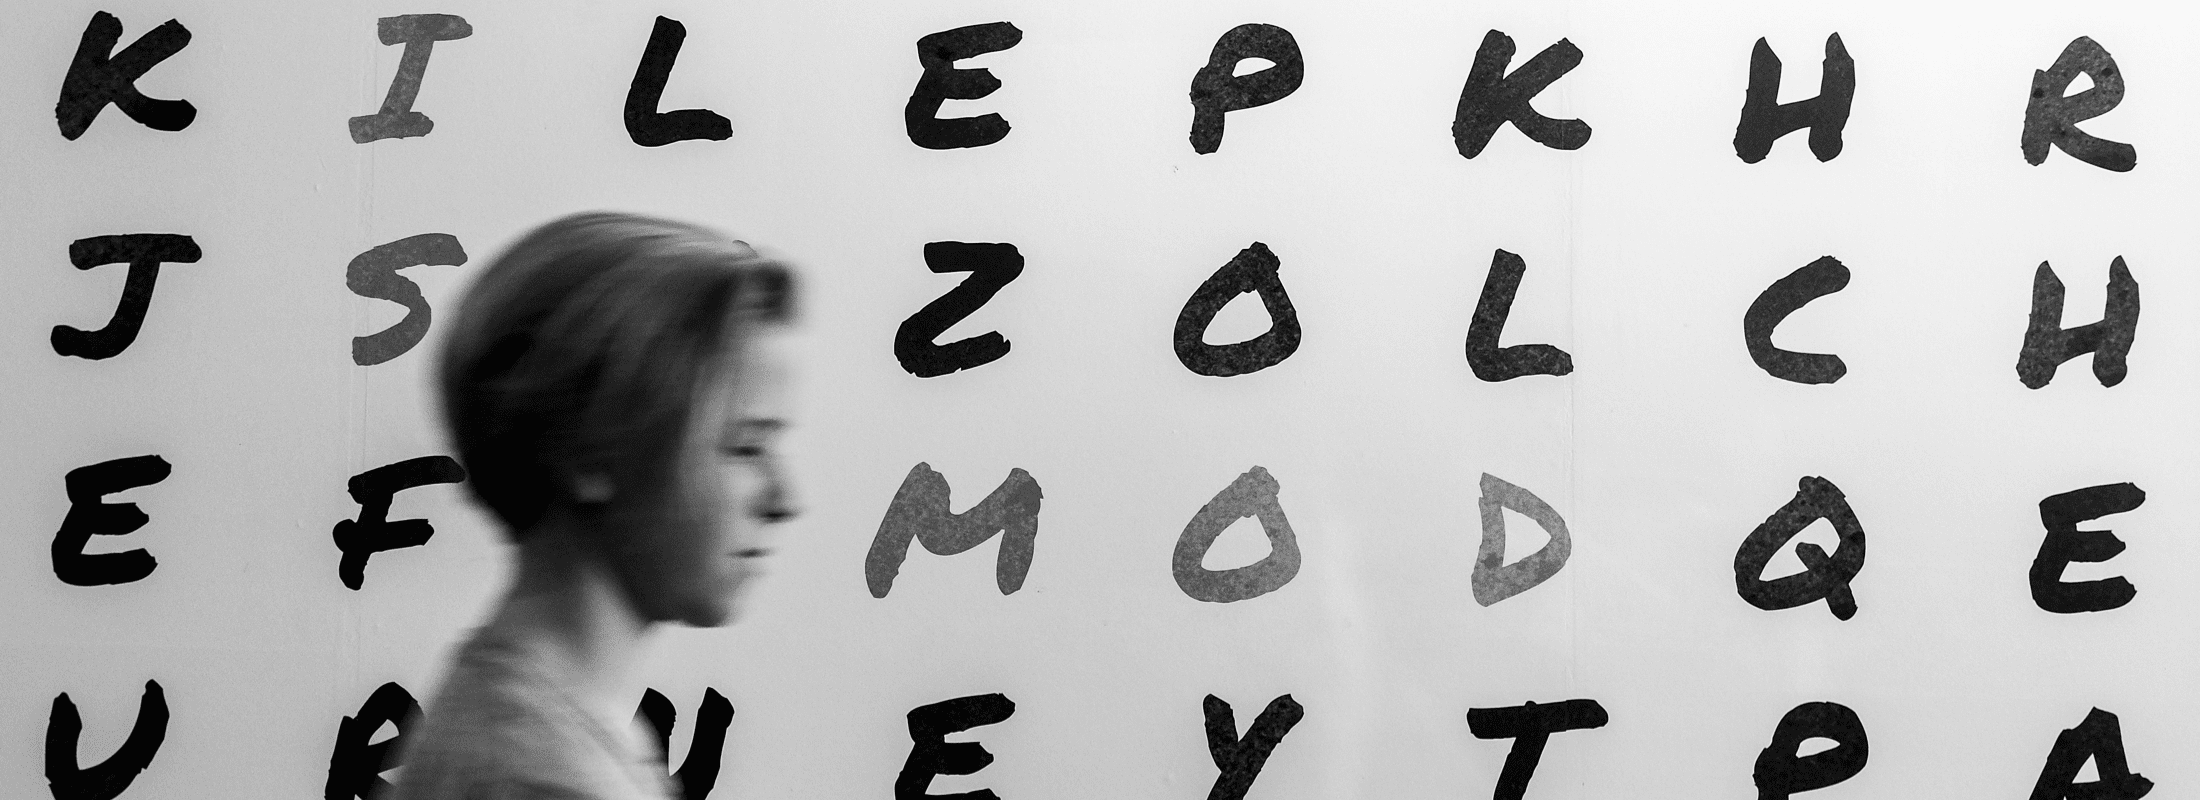 K I L E P K H R
J S Z O L C H
E F M O D Q E
U R N E Y T P A